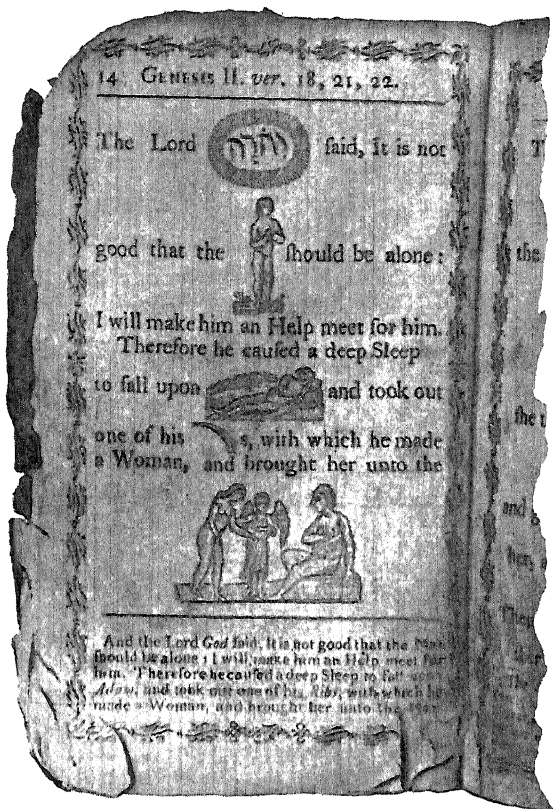 14 GENESIS II. ver. 18, 21, 22.
The Lord יהוה said, It is not
good that the should be alone:
I will make him an Help meet for him.
Therefore he caused a deep Sleep
to fall upon and took out
one of his s, with which he made
a Woman, and brought her unto the
And the Lord God said, It is not good that the Man
should be alone; I will make him an Help meet for
him. Therefore he caused a deep Sleep to fall upon
Adam, and took out one of his Ribs, with which he
made a Woman, and brought her unto the Man.
the
she
and
her,